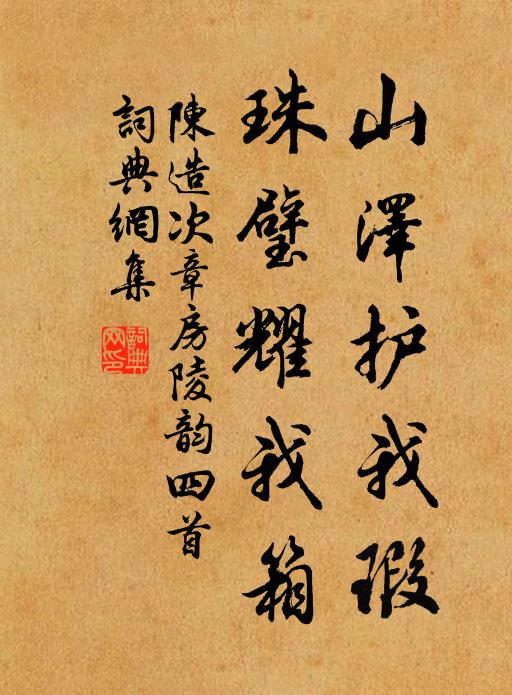 山澤护我瑕
珠璧耀我箱
陳造次章房陵韵四首
詞典網集
詞典
网印